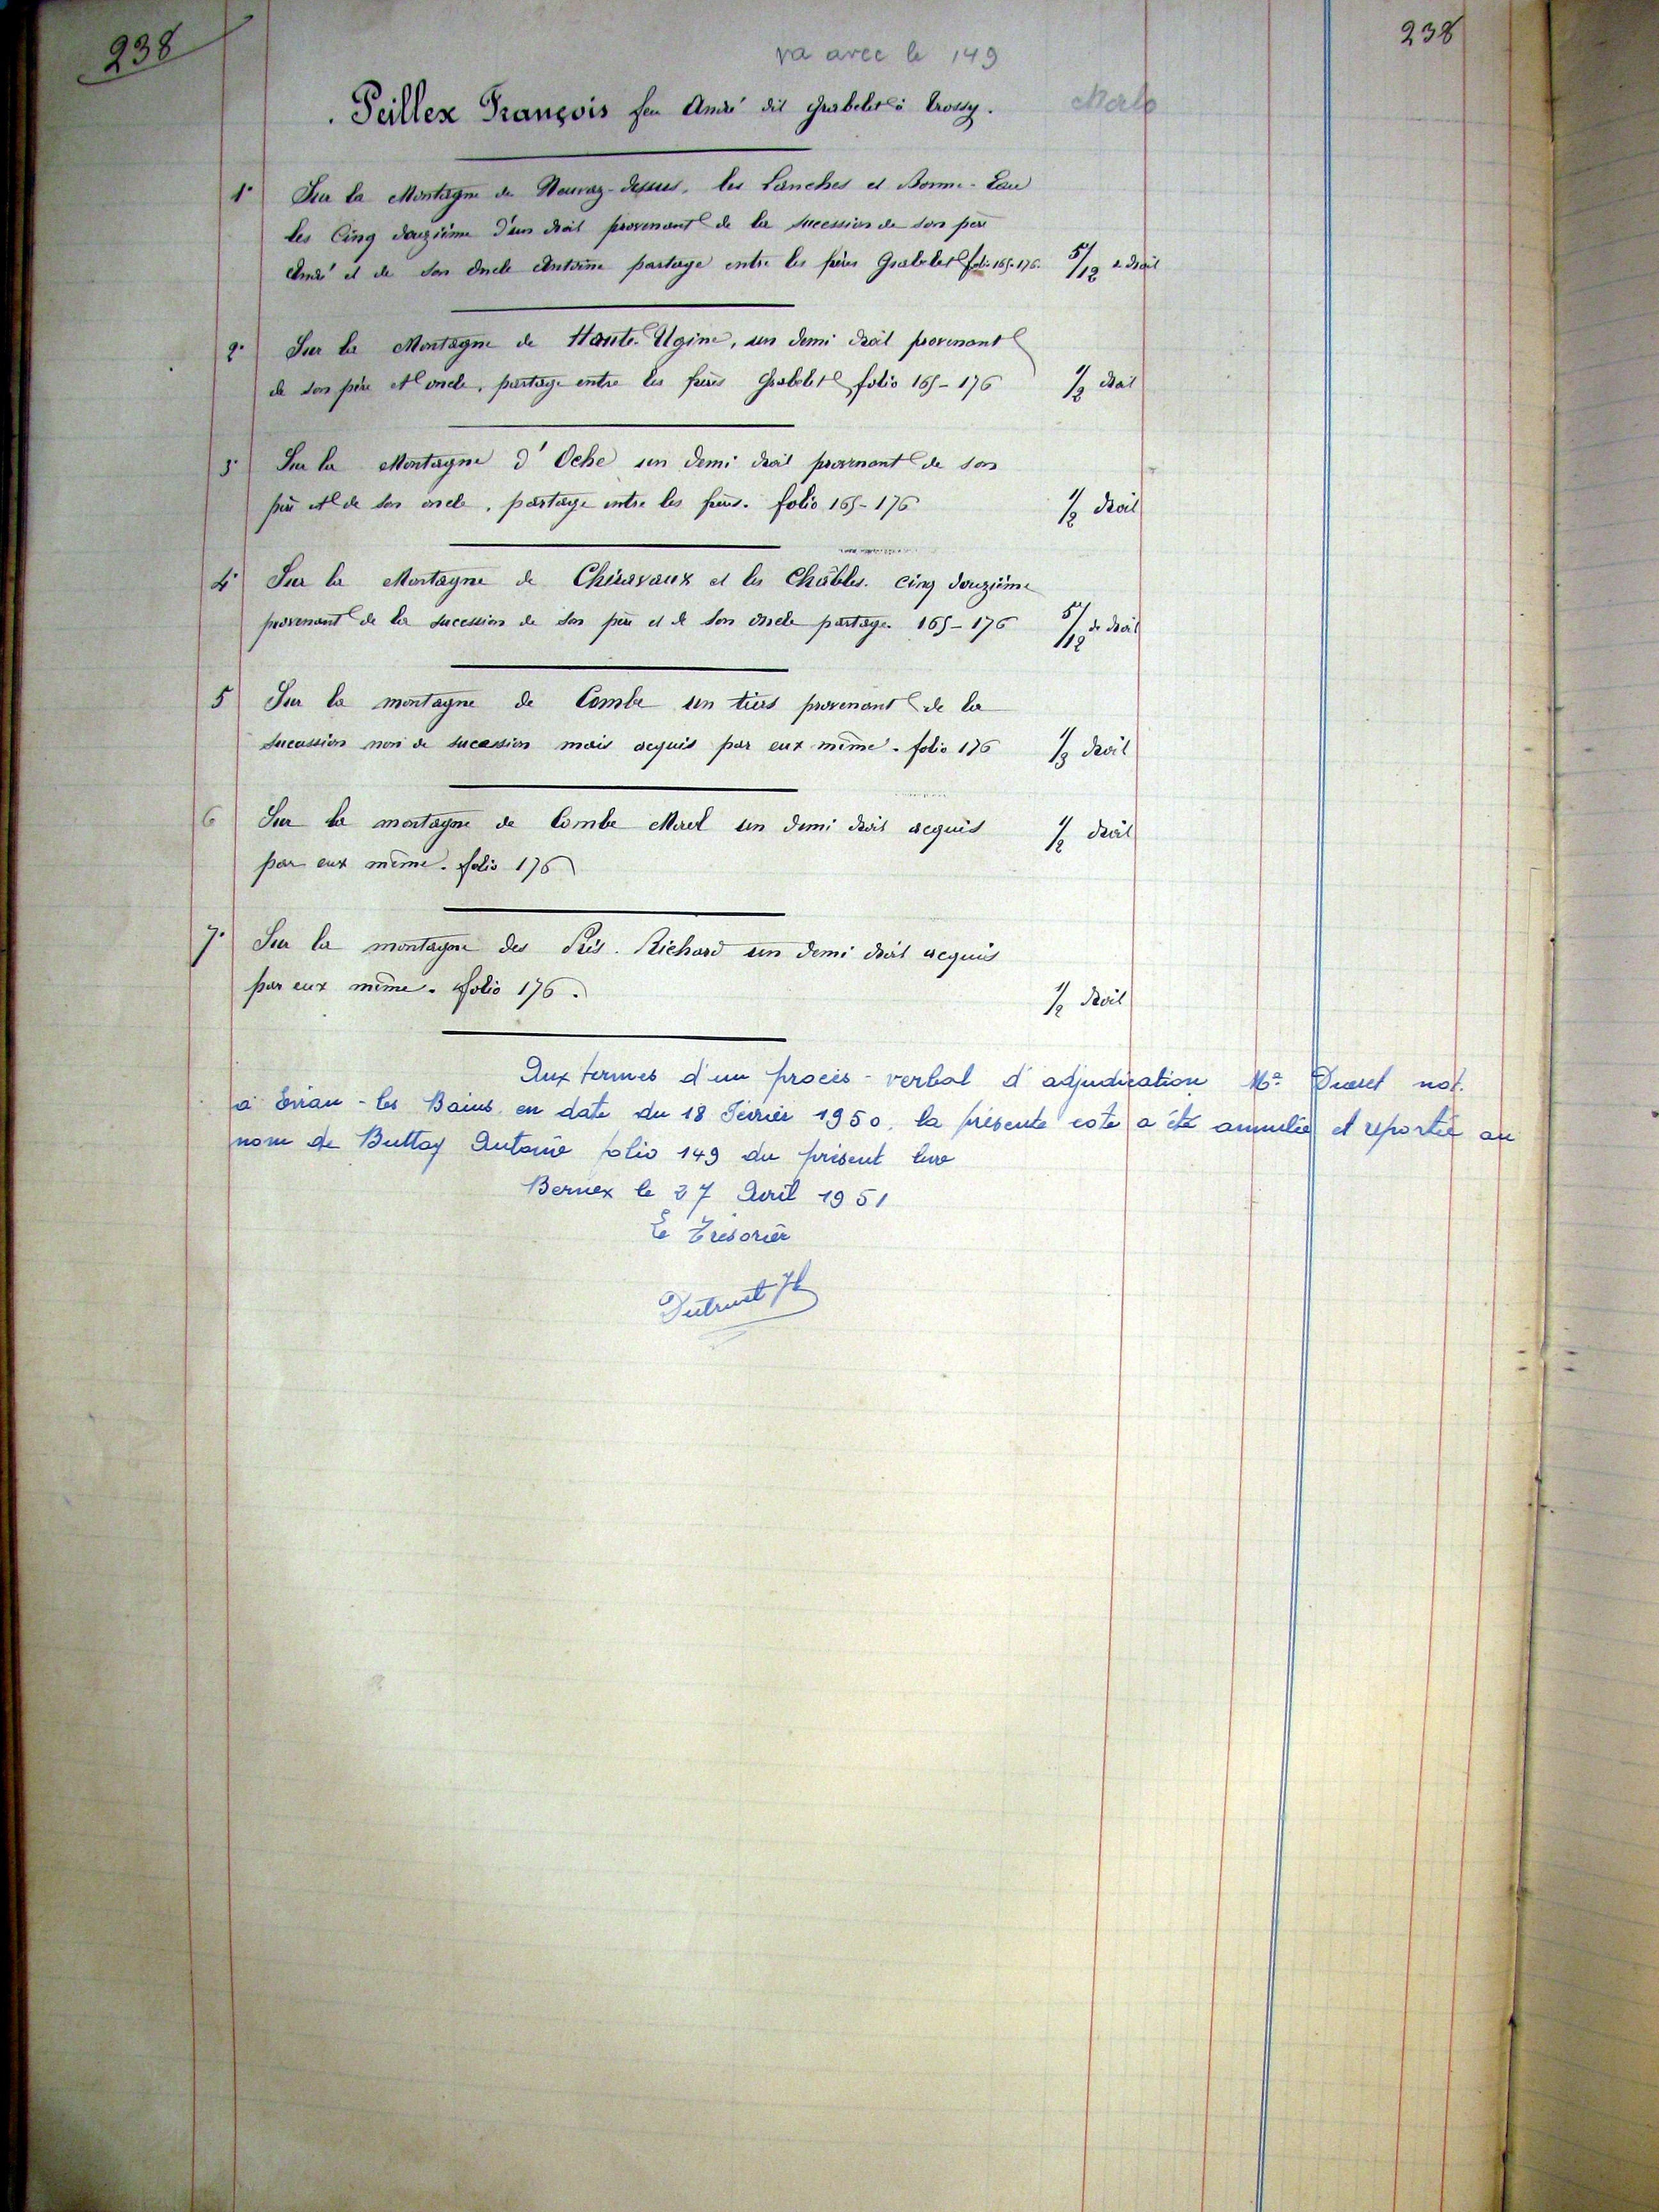 238
238
va avec le 149
Peillex François feu André dit Grabelet à Trossy.
1° Sur la Montagne de Neuvaz-dessus, les Lanches et Bonne-Eau
les Cinq douzième d'un droit provenant de la sucession de son père
André et de son Oncle Antoine partage entre les frères Grabelet folio 165-176. 5/12 de droit
2° Sur la Montagne de Haute-Ugine, un demi droit provenant
de son père et oncle, partage entre les frères Grabelet folio 165-176 1/2 droit
3° Sur la Montagne d'Oche un demi droit provenant de son
père et de son oncle, partage entre les frères. folio 165-176 1/2 droit
4° Sur la Montagne de Chéravaux et les Châbles. cinq douzième
provenant de la sucession de son père et de son Oncle partage. 165-176 5/12 de droit
5 Sur la montagne de Combe un tiers provenant de la
sucession non de sucession mais acquis par eux même. folio 176 1/3 droit
6 Sur la montagne de Combe Morel un demi droit acquis 1/2 droit
par eux même. folio 176
7° Sur la montagne des Prés. Richard un demi droit acquis
par eux même. folio 176. 1/2 droit
Aux termes d'un procès-verbal d'adjudication Me not.
à Evian-les Bains en date du 18 Février 1950. la présente cote a été annulée et reportée au
nom de Buttay Antoine folio 149 du présent livre
Bernex le 27 Avril 1951
Le Trésorier
Dutruel